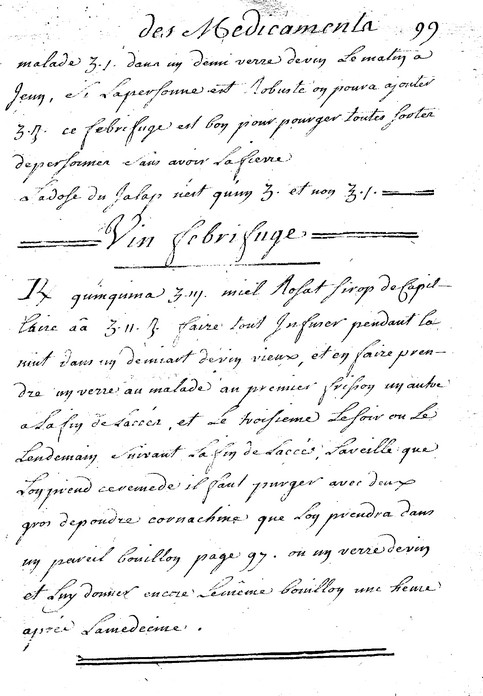 des Medicaments 99
malade ʒ.j. dans un demi verre devin Le matin a
Jeun, Si Lapersonne est Robuste on poura ajouter
ʒ.ß. ce febrifuge est bon pour purger toutes sortes
depersonnes Sans avoir Lafievre
a Ladose du Jalap n'est qu'un ʒ. et non ʒ.j.
Vin febrifuge
℞ quinquina ʒ.iij. miel Rosat sirop de Capil-
laire āā ʒ.ij.ß. faire tout Infuser pendant la
nuit dans un demiart devin vieux, et en faire pren-
dre un verre au malade au premier frisson un autre
a Lafin de Laccés, et Le troisieme Lesoir ou Le
Lendemain Suivant Lafin de Laccés, Laveille que
Lon prend ceremede il faut purger avec deux
gros depoudre cornachine que Lon prendra dans
un pareil bouillon page 97. ou un verre devin
et Luy donner encore Lemême bouillon une heure
après Lamedecine.